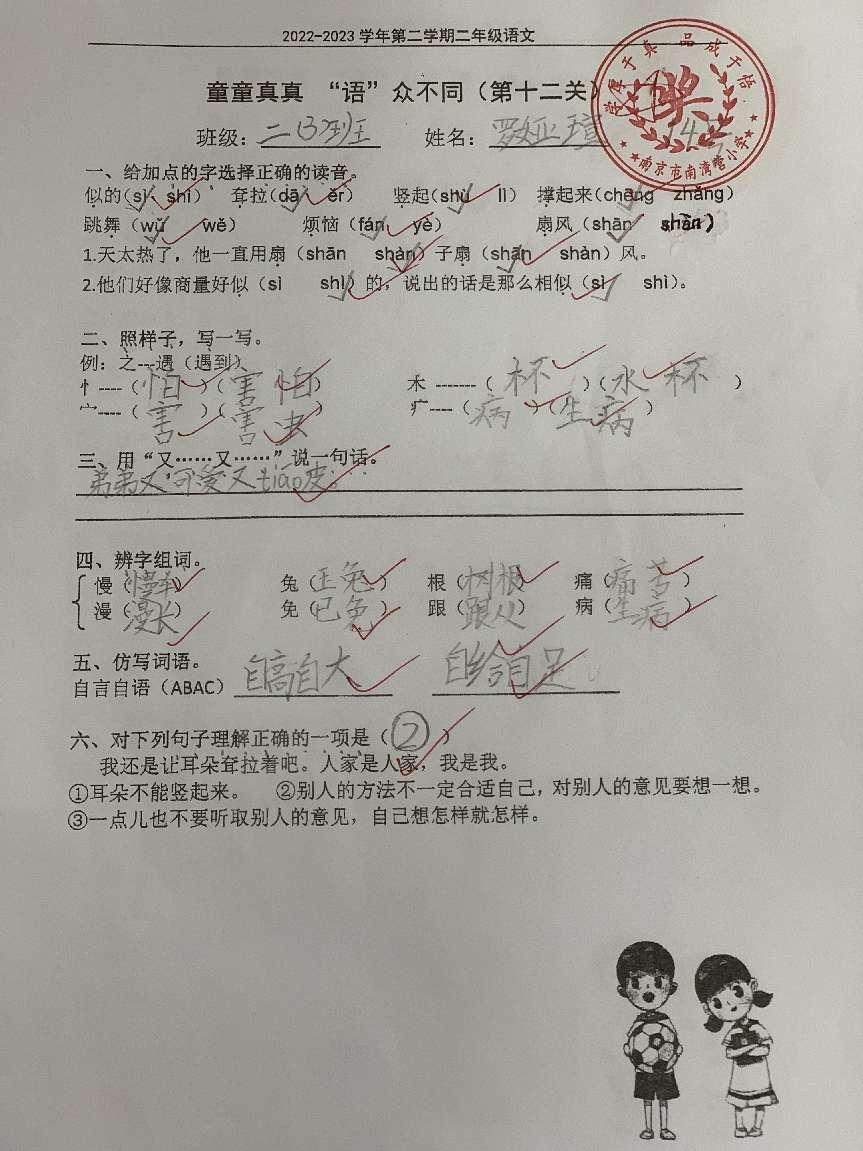 2022-2023 学年第二学期二年级语文
童童真真 “语”众不同（第十二关）
爱厚于真 品成于悟
奖
★★★南京市南湾营小学★★★
班级：二(3)班 姓名：罗娅瑄
一、给加点的字选择正确的读音。
似的（sì shì） 耷拉（dā ěr） 竖起（shù lì）撑起来（chēng zhǎng）
跳舞（wǔ wě） 烦恼（fán yè） 扇风（shān shàn）
1.天太热了，他一直用扇（shān shàn）子扇（shān shàn）风。
2.他们好像商量好似（sì shì）的，说出的话是那么相似（sì shì）。
二、照样子，写一写。
例：辶---遇（遇到）
忄----（怕）（害怕） 木 -------（杯）（水杯）
宀----（害）（害虫） 疒----（病）（生病）
三、用“又……又……”说一句话。
弟弟又可爱又tiáo皮。
四、辨字组词。
慢（慢车） 兔（玉兔） 根（树根） 痛（痛苦）
漫（漫长） 免（已免） 跟（跟从） 病（生病）
五、仿写词语。
自言自语（ABAC）自高自大 自给自足
六、对下列句子理解正确的一项是（②）
我还是让耳朵耷拉着吧。人家是人家，我是我。
①耳朵不能竖起来。 ②别人的方法不一定合适自己，对别人的意见要想一想。
③一点儿也不要听取别人的意见，自己想怎样就怎样。